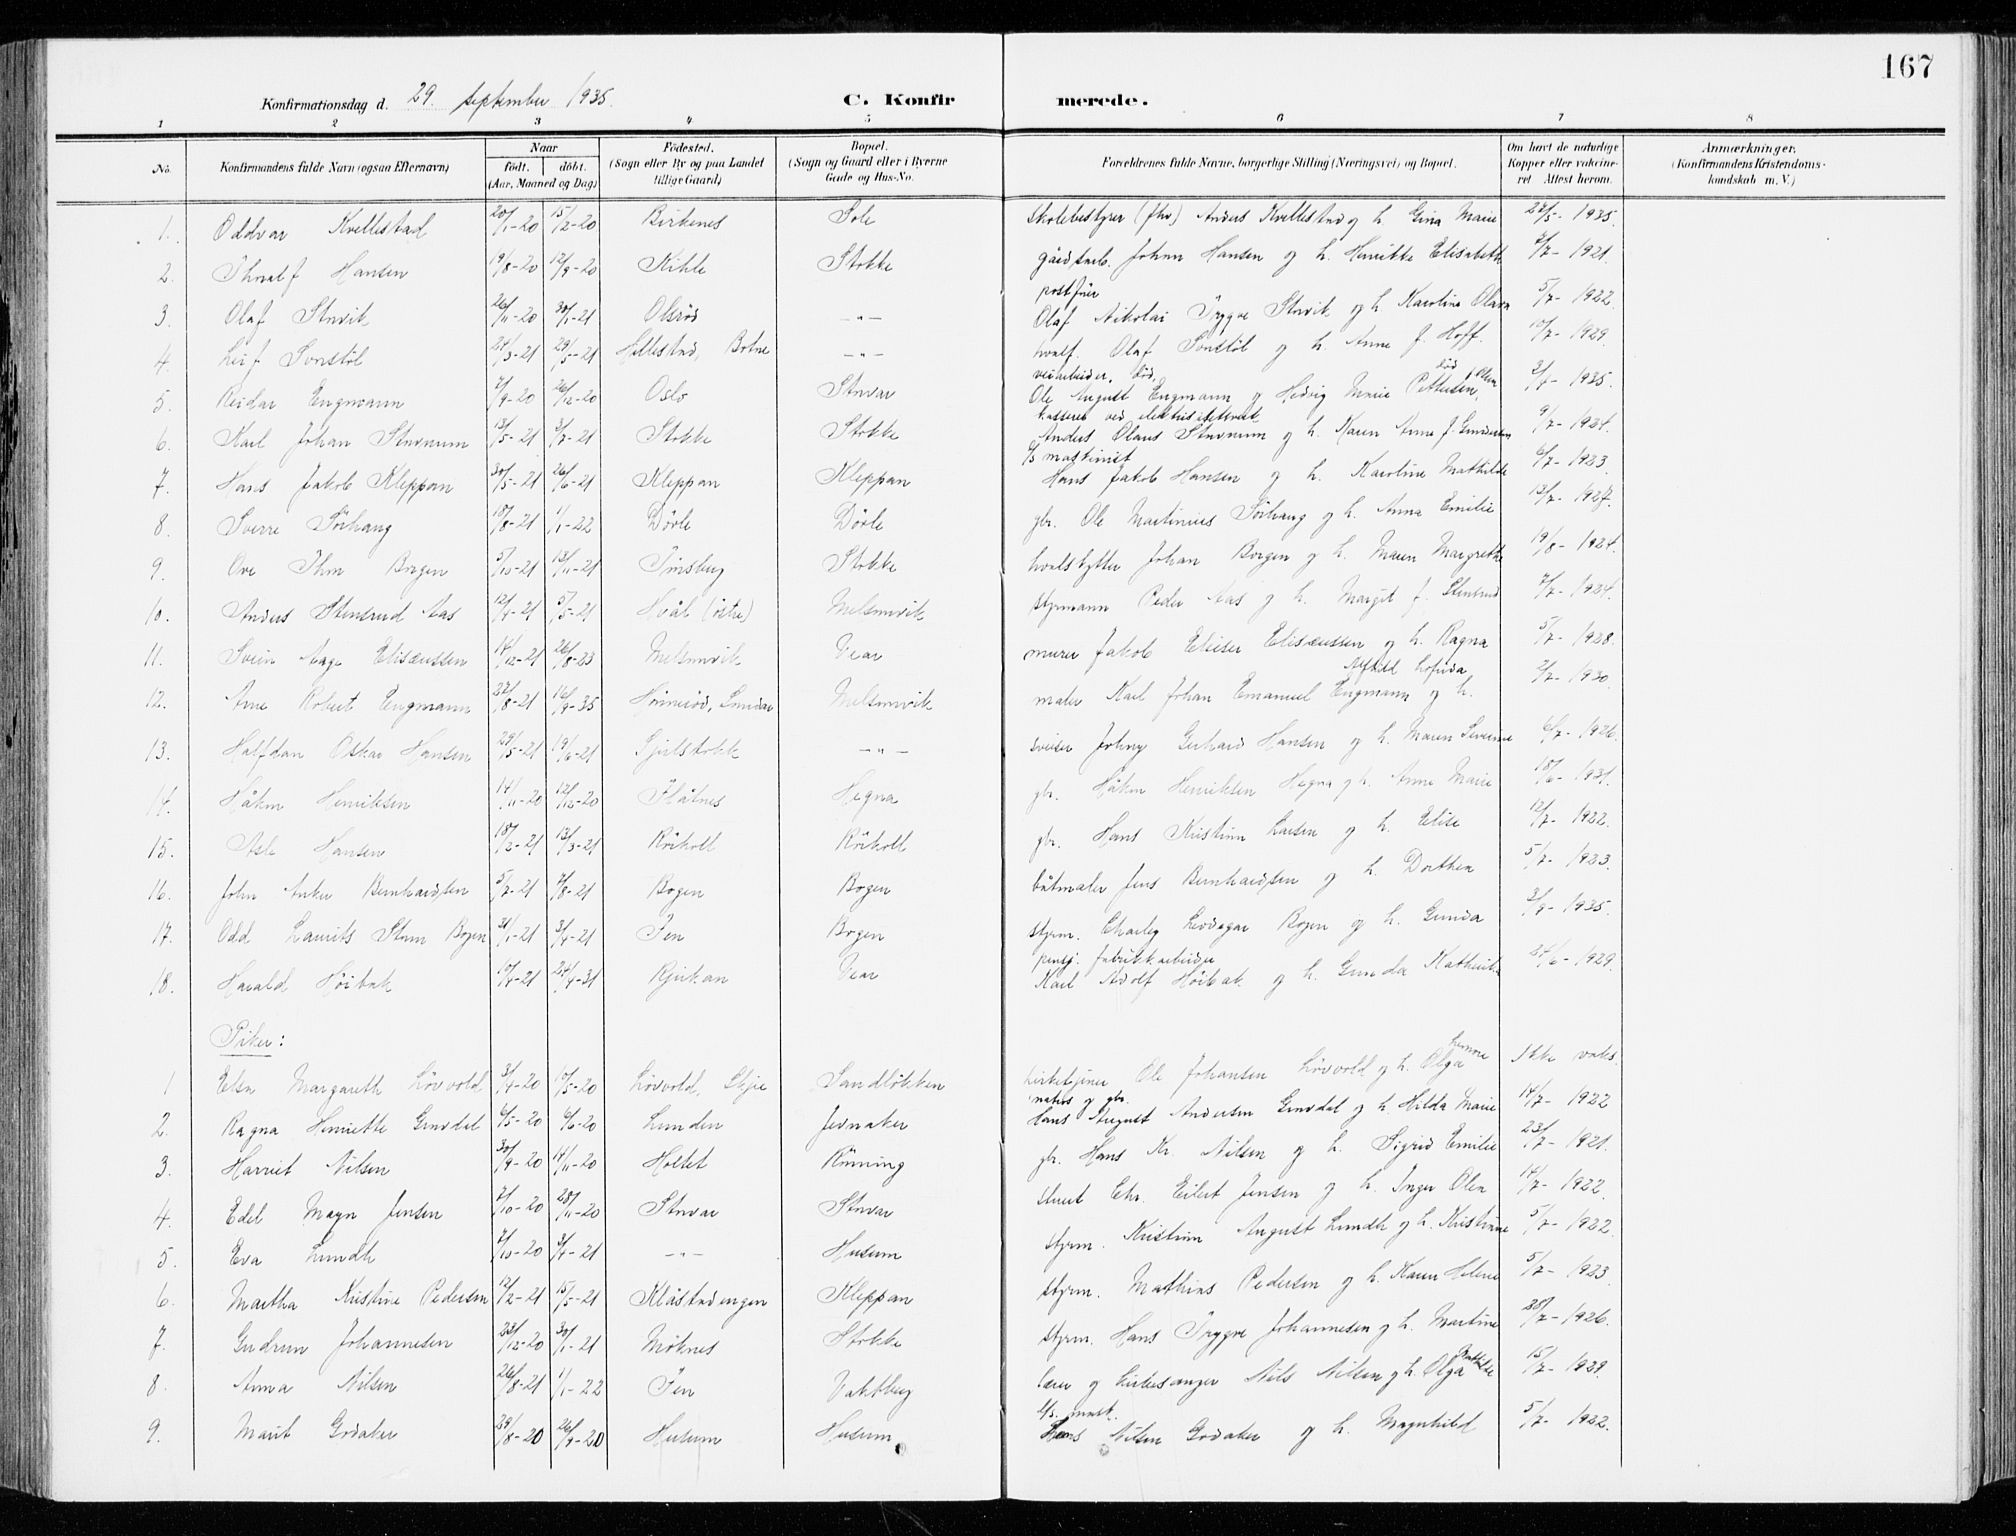 167
Konfirmationsdag d. 29. september 1935.
C. Konfirmerede.
1 2 3 4 5 6 7 8
No. Konfirmandens fulde Navn (ogsaa Efternavn) Naar født. døbt. (Aar, Maaned og Dag) Födested. (Sogn eller By og paa Landet tillige Gaard) Bopæl. (Sogn og Gaard eller i Byerne Gade og Hus-No. Forældrenes fulde Navne, borgerlige Stilling (Næringsvei) og Bopæl. Om havt de naturlige Kopper eller vakcineret Attest herom. Anmærkninger. (Konfirmandens Kristendomskundskab m. V.)
1. Oddvar Kvellestad 20/1-20 15/2-20 Birkenes Sole Skolebestyrer (fhv) Anders Kvellestad og h. Gina Marie 24/5-1935.
2. Thoralf Hansen 19/8-20 12/9-20 Kihle Stokke gårdsarb. Johan Hansen og h. Henrikke Elisabeth 7/7-1921.
3. Olaf Storvik 26/11-20 30/1-21 Olsrød -"- postfører Olaf Nikolai Trygve Storvik og h. Karoline Olava 5/7-1922
4. Leif Sonstöl 27/3-21 29/5-21 Hillestad, Botne -"- hvalf. Olaf Sonstöl og h. Anne f. Hoff. 10/7-1929.
5. Reidar Engmann 7/9-20 26/12-20 Oslo Storvar veiarbeider, död. Ole August Engmann og Hedvig Marie Pettersen, död 2/7-1935.
6. Karl Johan Stornum 13/5-21 3/7-21 Stokke Stokke kasserer ved elektrisitetsverk Anders Olaus Stornum og h. Karen Anne f. Gundersen 9/7-1924.
7. Hans Jakob Kleppan 30/5-21 26/6-21 Kleppan Kleppan h/s maskinist Hans Jakob Hansen og h. Karoline Mathilde 6/7-1923.
8. Sverre Sörhaug 18/8-21 1/1-22 Dörle Dörle gbr. Ole Martinius Sörhaug og h. Anna Emilie 13/7-1927.
9. Ove Thor Borgen 5/10-21 13/11-21 Tönsberg Stokke hvalskytter Johan Borgen og h. Maren Margrethe 19/8-1924.
10. Anders Stensrud Aas 12/4-21 5/5-21 Hvål (östre) Melsomvik styrmann Peder Aas og h. Margit f. Stensrud 7/7-1924.
11. Svein Aage Elisæussen 14/12-21 26/8-23 Melsomvik Vear murer Jakob Eliser Elisæussen og h. Ragna 5/7-1928.
12. Arne Robert Engmann 27/8-21 16/9-35 Hönneröd, Sandar Melsomvik maler Karl Johan Emanuel Engmann og h. Alfhild Lovida 2/7-1930.
13. Halfdan Oskar Hansen 29/5-21 19/6-21 Gjulstokk -"- sveiser Johny Gerhard Hansen og h. Maren Severine 6/7-1926.
14. Håkon Henriksen 14/11-20 12/12-20 Flåtnes Hegna gbr. Håkon Henriksen Hegna og h. Anne Marie 18/6-1931.
15. Asle Hansen 18/2-21 13/3-21 Rökholt Rökholt gbr. Hans Kristian Larsen og h. Elise 12/7-1922.
16. John Anker Bernhardsen 5/7-21 7/8-21 Bogen Bogen båtmaler Jens Bernhardsen og h. Dorthea 5/7-1923.
17. Odd Laurits Storm Bogen 31/1-21 3/4-21 Fen Bogen styrm. Charley Leodegar Bogen og h. Gunda 3/9-1935.
18. Harald Höibak 10/4-21 24/4-31 Rjukan Vear pensj. fabrikkarbeider Karl Adolf Höibak og h. Gunda Kathrine 24/6-1929.
Piker:
1 Elsa Margareth Lövold 3/4-20 10/5-20 Lövold, Skjee Sandløkken kirketjener Ole Johansen Lövold og h. Olga Lemone Ikke vaks.
2. Ragna Henriette Grindal 6/5-20 6/6-20 Lunden Jernaker matros og gbr. Hans August Andersen Grindal og h. Hilda Marie 14/7-1922
3. Harriet Nilsen 30/9-20 14/11-20 Holtet Rönning gbr. Hans Kr. Nilsen og h. Sigrid Emilie 23/7-1921.
4. Edel Mayn Jensen 7/10-20 28/11-20 Storvar Storvar stuert Chr. Eilert Jensen og h. Inger Olea 14/7-1922.
5. Eva Lundh 7/10-20 3/4-21 -"- Husum styrm. Kristian August Lundh og h. Kristine 5/7-1922.
6. Martha Kristine Pedersen 12/2-21 15/5-21 Klåstadengen Kleppan styrm. Mathias Pedersen og h. Karen Helene 5/7-1923.
7. Gudrun Johannesen 23/12-20 30/1-21 Möknes Stokke styrm. Hans Trygve Johannesen og h. Martine 28/7-1926.
8. Anna Nilsen 26/8-21 1/1-22 Fen Vaktberg lærer og kirkesanger Nils Nilsen og h. Olga Mathilde 15/7-1929.
9. Marit Grdaker 29/8-20 26/9-20 Husum Husum h/s. mask. Hans Nilsen Grdaker og h. Magnhild 5/7-1922.